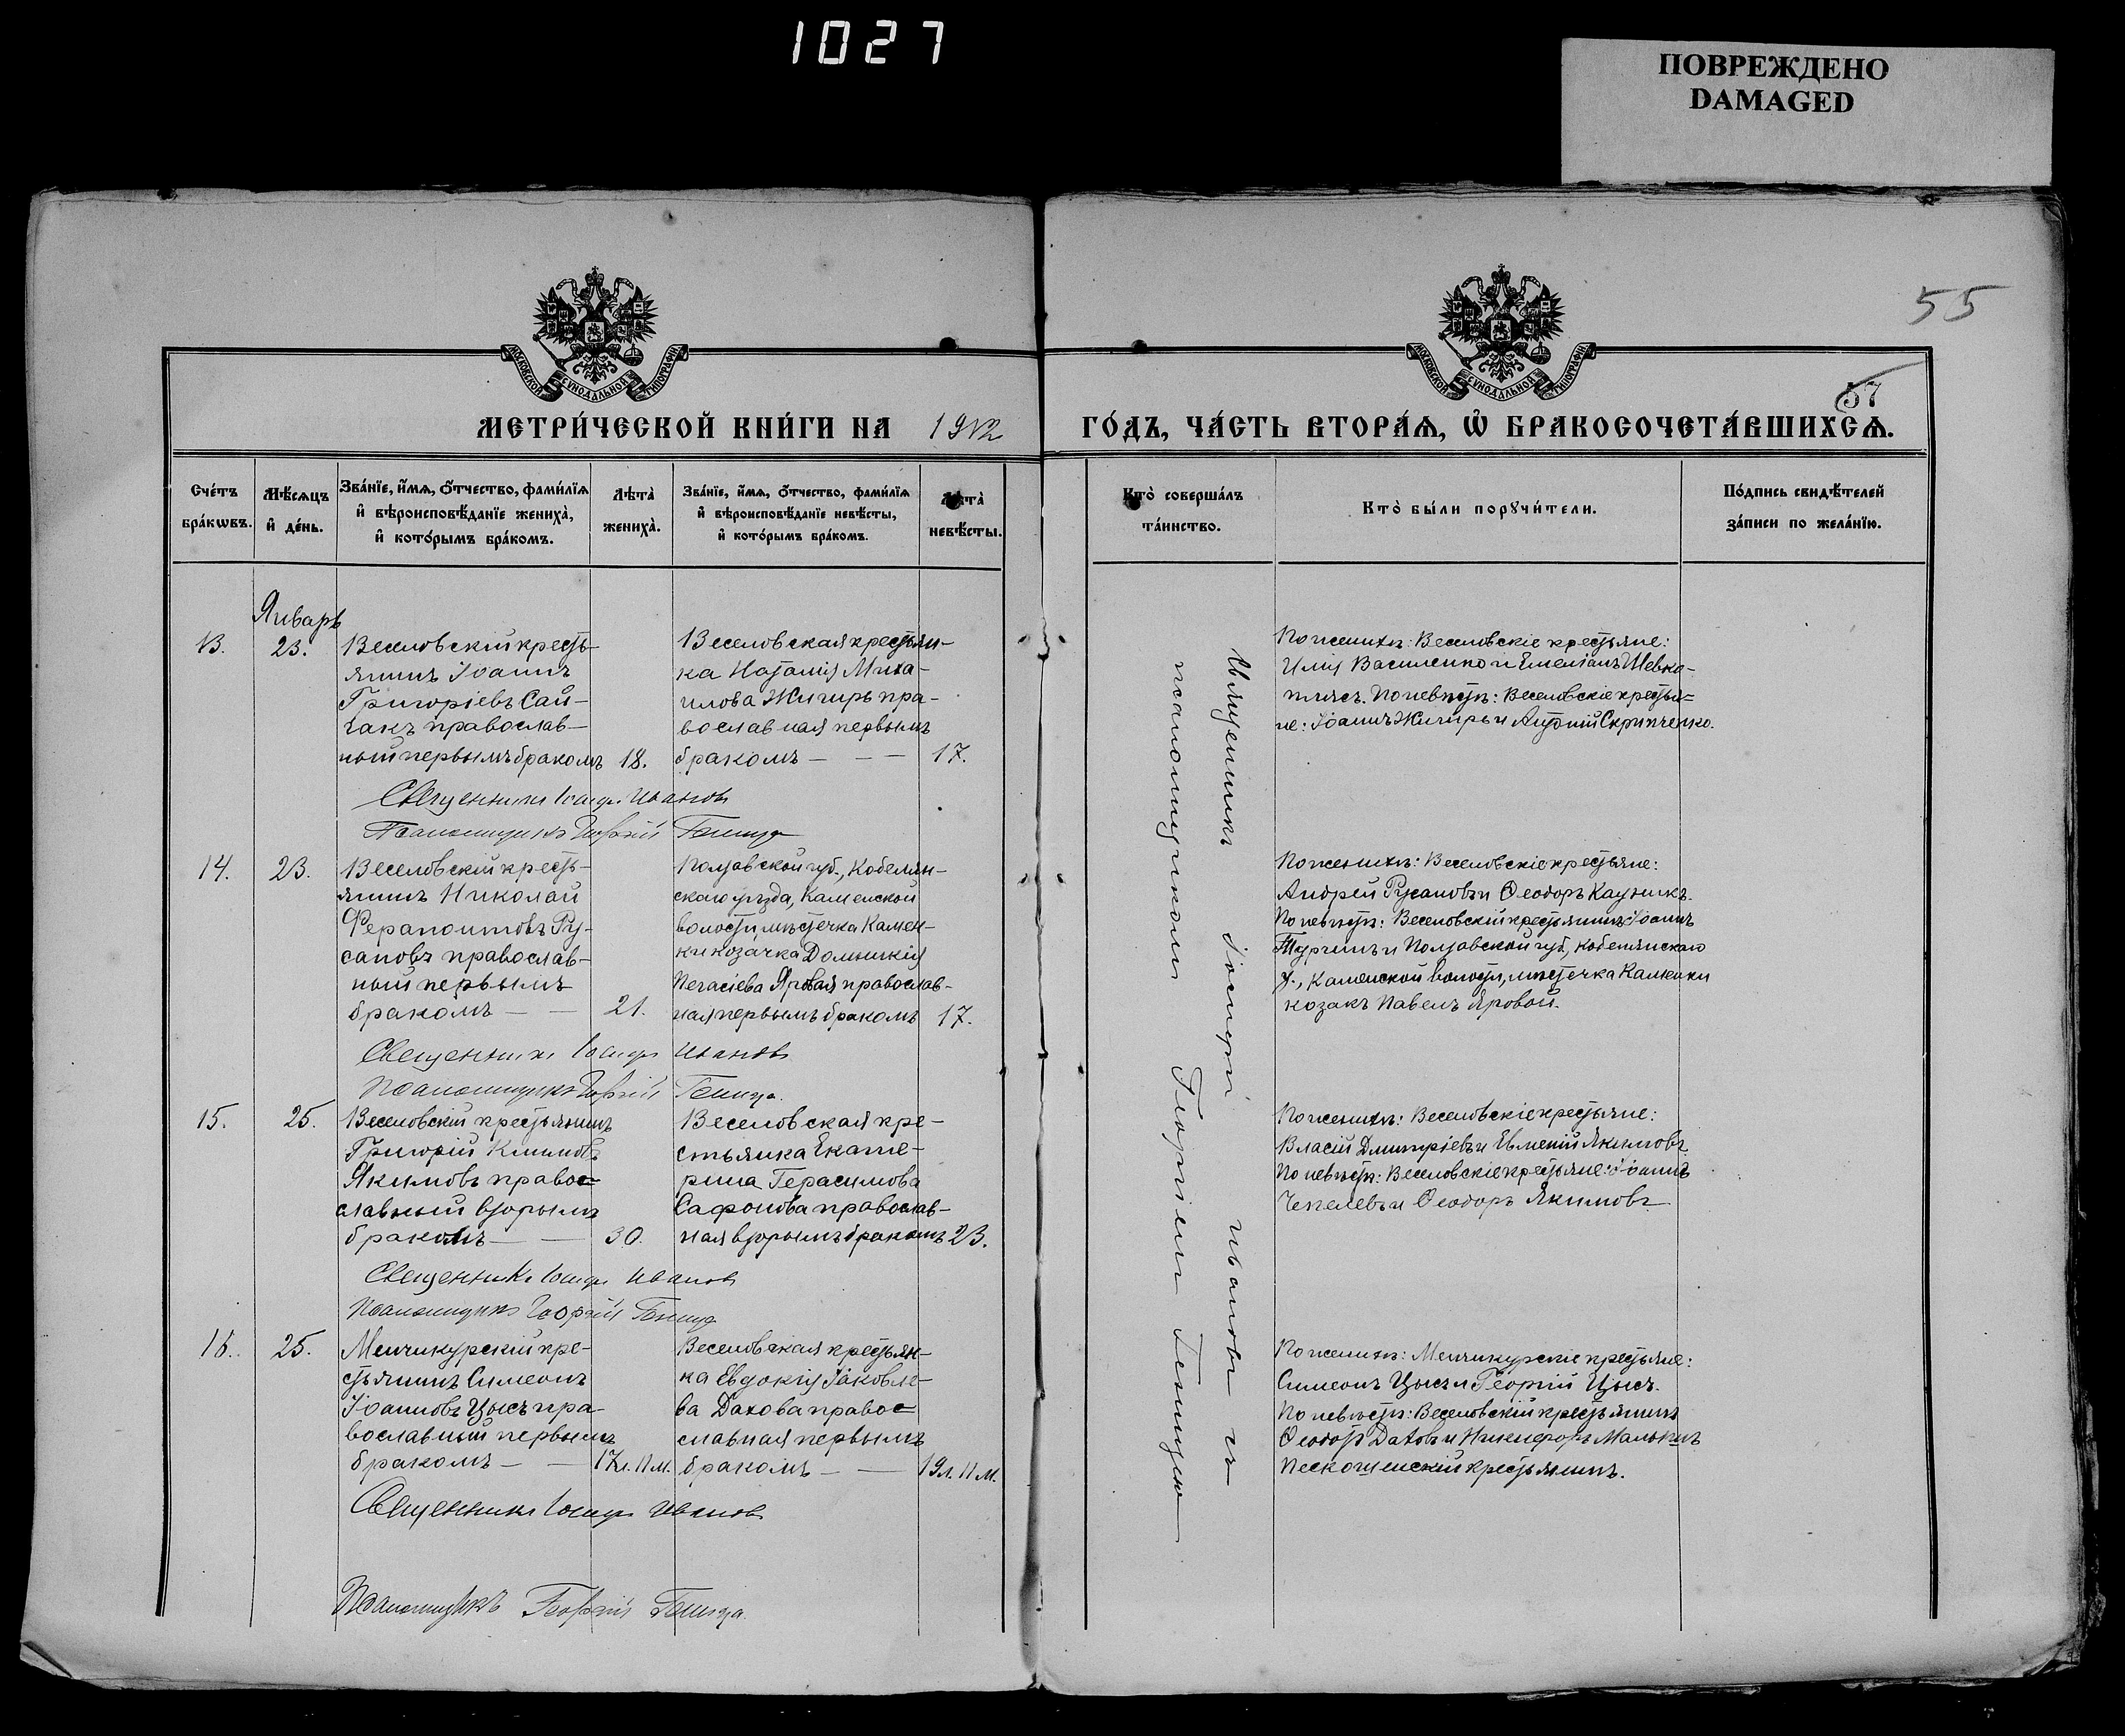 1027
ПОВРЕЖДЕНО
DAMAGED
55
57
МОСКОВСКОЙ СѴНОДАЛЬНОЙ ТИПОГРАФІИ
МОСКОВСКОЙ СѴНОДАЛЬНОЙ ТИПОГРАФІИ
МЕТРИ́ЧЕСКОЙ КНИ́ГИ НА 1912 ГО́ДЪ, ЧА́СТЬ ВТОРА́Ѧ, Ѡ҆ БРАКОСОЧЕТА́ВШИХСѦ.
Сче́тъ бра́кωвъ.
Мѣ́сѧцъ и҆ де́нь.
Зва́нїе, и҆́мѧ, ѻ҆́тчество, фами́лїѧ и҆ вѣроисповѣ́данїе жениха̀, и҆ кото́рымъ бра́комъ.
Лѣта̀ жениха̀.
Зва́нїе, и҆́мѧ, ѻ҆́тчество, фами́лїѧ и҆ вѣроисповѣ́данїе невѣ́сты, и҆ кото́рымъ бра́комъ.
Лѣта̀ невѣ́сты.
Кто̀ соверша́лъ та́инство.
Кто̀ бы́ли порꙋчи́тели.
По́дпись свидѣ́телей за́писи по жела́нїю.
Январь
13.
23.
Веселовскій кресть-
янинъ Іоаннъ
Григоріевъ Сай-
чакъ православ-
ный первымъ бракомъ
18.
Веселовская крестьян-
ка Наталія Миха-
илова Жигирь пра-
вославная первымъ
бракомъ — — —
17.
По женихѣ: Веселовскіе крестьяне:
Илія Василенко и Емеліанъ Шевко-
плясъ. По невѣстѣ: Веселовскіе крестья-
не: Іоаннъ Жигирь и Антоній Скрипченко.
Священникъ Іосифъ Ивановъ
Псаломщикъ Георгій
14.
23.
Веселовскій кресть-
янинъ Николай
Ферапонтовъ Ру-
сановъ православ-
ный первымъ
бракомъ — —
21.
Полтавской губ., Кобеляк-
скаго уѣзда, Каменской
волости, мѣстечка Камен-
ки козачка Домникія
Яровая православ-
ная первымъ бракомъ
17.
По женихѣ: Веселовскіе крестьяне:
Андрей Русановъ и Ѳеодоръ
По невѣстѣ: Веселовскій крестьянинъ Іоаннъ
Турчинъ и Полтавской губ., Кобелякскаго
у., Каменской волости, мѣстечка Каменки
козакъ Павелъ Яровой.
Священникъ Іосифъ Ивановъ
Псаломщикъ Георгій
15.
25.
Веселовскій крестьянинъ
Григорій Климовъ
Якимовъ право-
славный вторымъ
бракомъ — —
30.
Веселовская кре-
стьянка Екате-
рина Герасимова
Сафонова православ-
ная вторымъ бракомъ
23.
По женихѣ: Веселовскіе крестьяне:
Власій Дмитріевъ и Евменій Якимовъ
По невѣстѣ: Веселовскіе крестьяне: Іоаннъ
Чепелевъ и Ѳеодоръ Якимовъ
Священникъ Іосифъ Ивановъ
Псаломщикъ Георгій
16.
25.
Менчикурскій кре-
стьянинъ Симеонъ
Іоанновъ Цысъ пра-
вославный первымъ
бракомъ — —
17 л. 11 м.
Веселовская крестьян-
ка Евдокія Іаковле-
ва Дахова право-
славная первымъ
бракомъ — —
19 л. 11 м.
По женихѣ: Менчикурскіе крестьяне:
Симеонъ Цысъ и Георгій Цысъ.
По невѣстѣ: Веселовскій крестьянинъ
Ѳеодоръ Даховъ и Никифоръ Малыкъ
Пескошенскій крестьянинъ.
Священникъ Іосифъ Ивановъ
Псаломщикъ Георгій
Священникъ Іосифъ Ивановъ съ
псаломщикомъ Георгіемъ